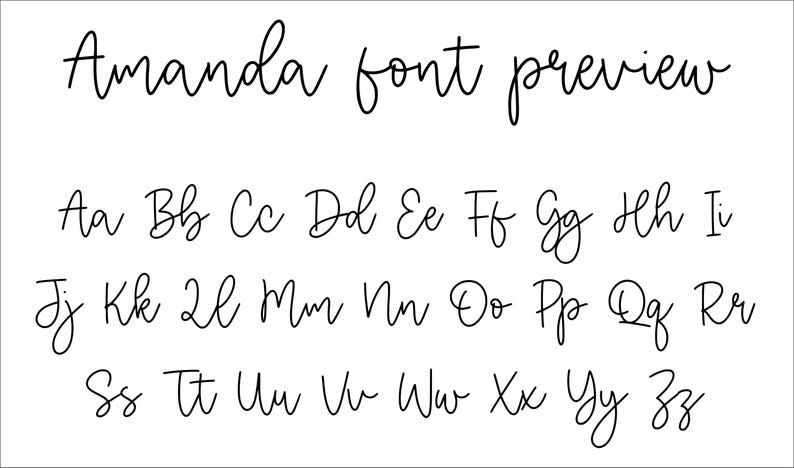 Amanda font preview
Aa Bb Cc Dd Ee Ff Gg Hh Ii
Jj Kk Ll Mm Nn Oo Pp Qq Rr
Ss Tt Uu Vv Ww Xx Yy Zz